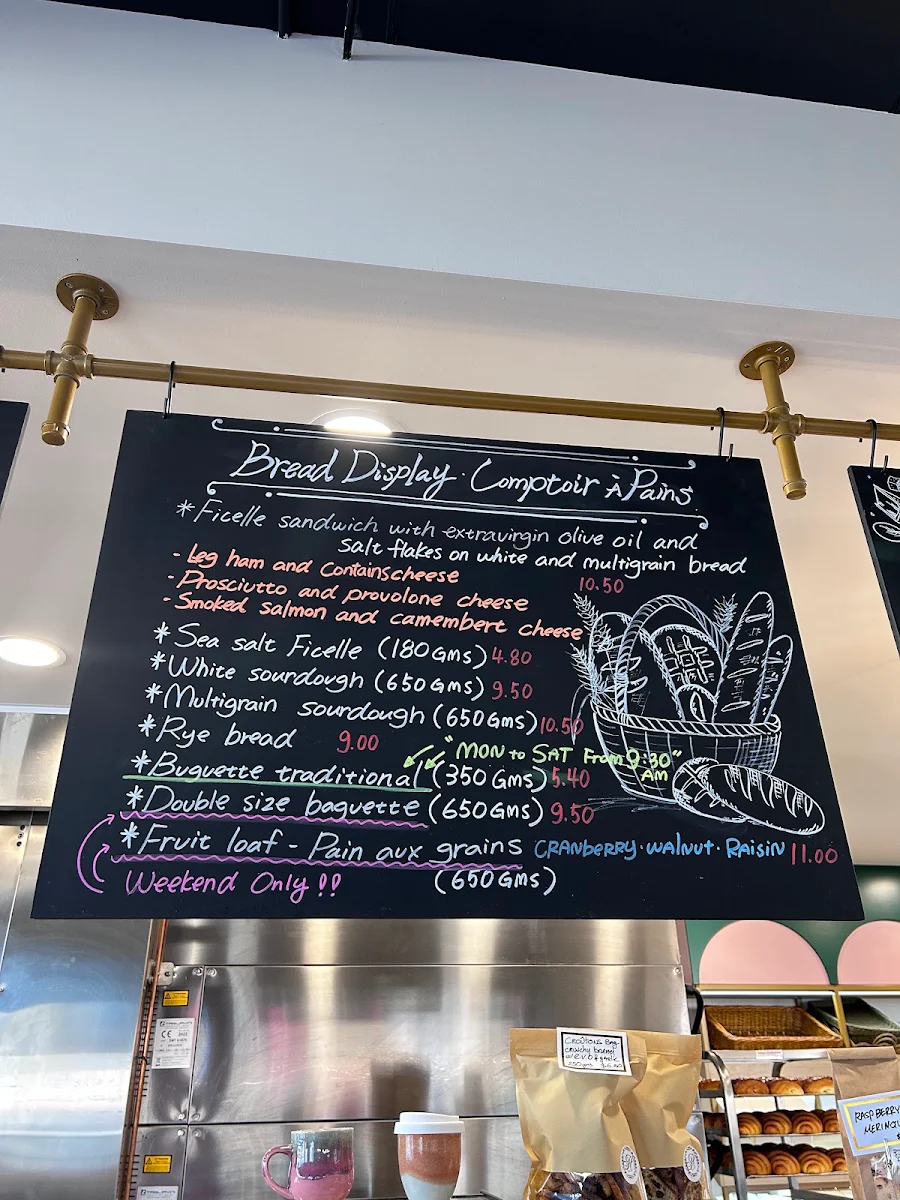 Bread Display · Comptoir À Pains
*Ficelle sandwich with extravirgin olive oil and
salt flakes on white and multigrain bread
- Leg ham and Containscheese 10.50
- Prosciutto and provolone cheese
- Smoked salmon and camembert cheese
*Sea salt Ficelle (180 Gms) 4.80
*White sourdough (650 Gms) 9.50
*Multigrain sourdough (650 Gms) 10.50
*Rye bread 9.00
"MON to SAT From 9:30"
AM
*Buguette traditional (350 Gms) 5.40
*Double size baguette (650 Gms) 9.50
*Fruit loaf - Pain aux grains CRANberry · walnut · RAISIN 11.00
Weekend Only !! (650 Gms)
CROÛTONS Bag
crunchy
RASPBERRY
MERINGU